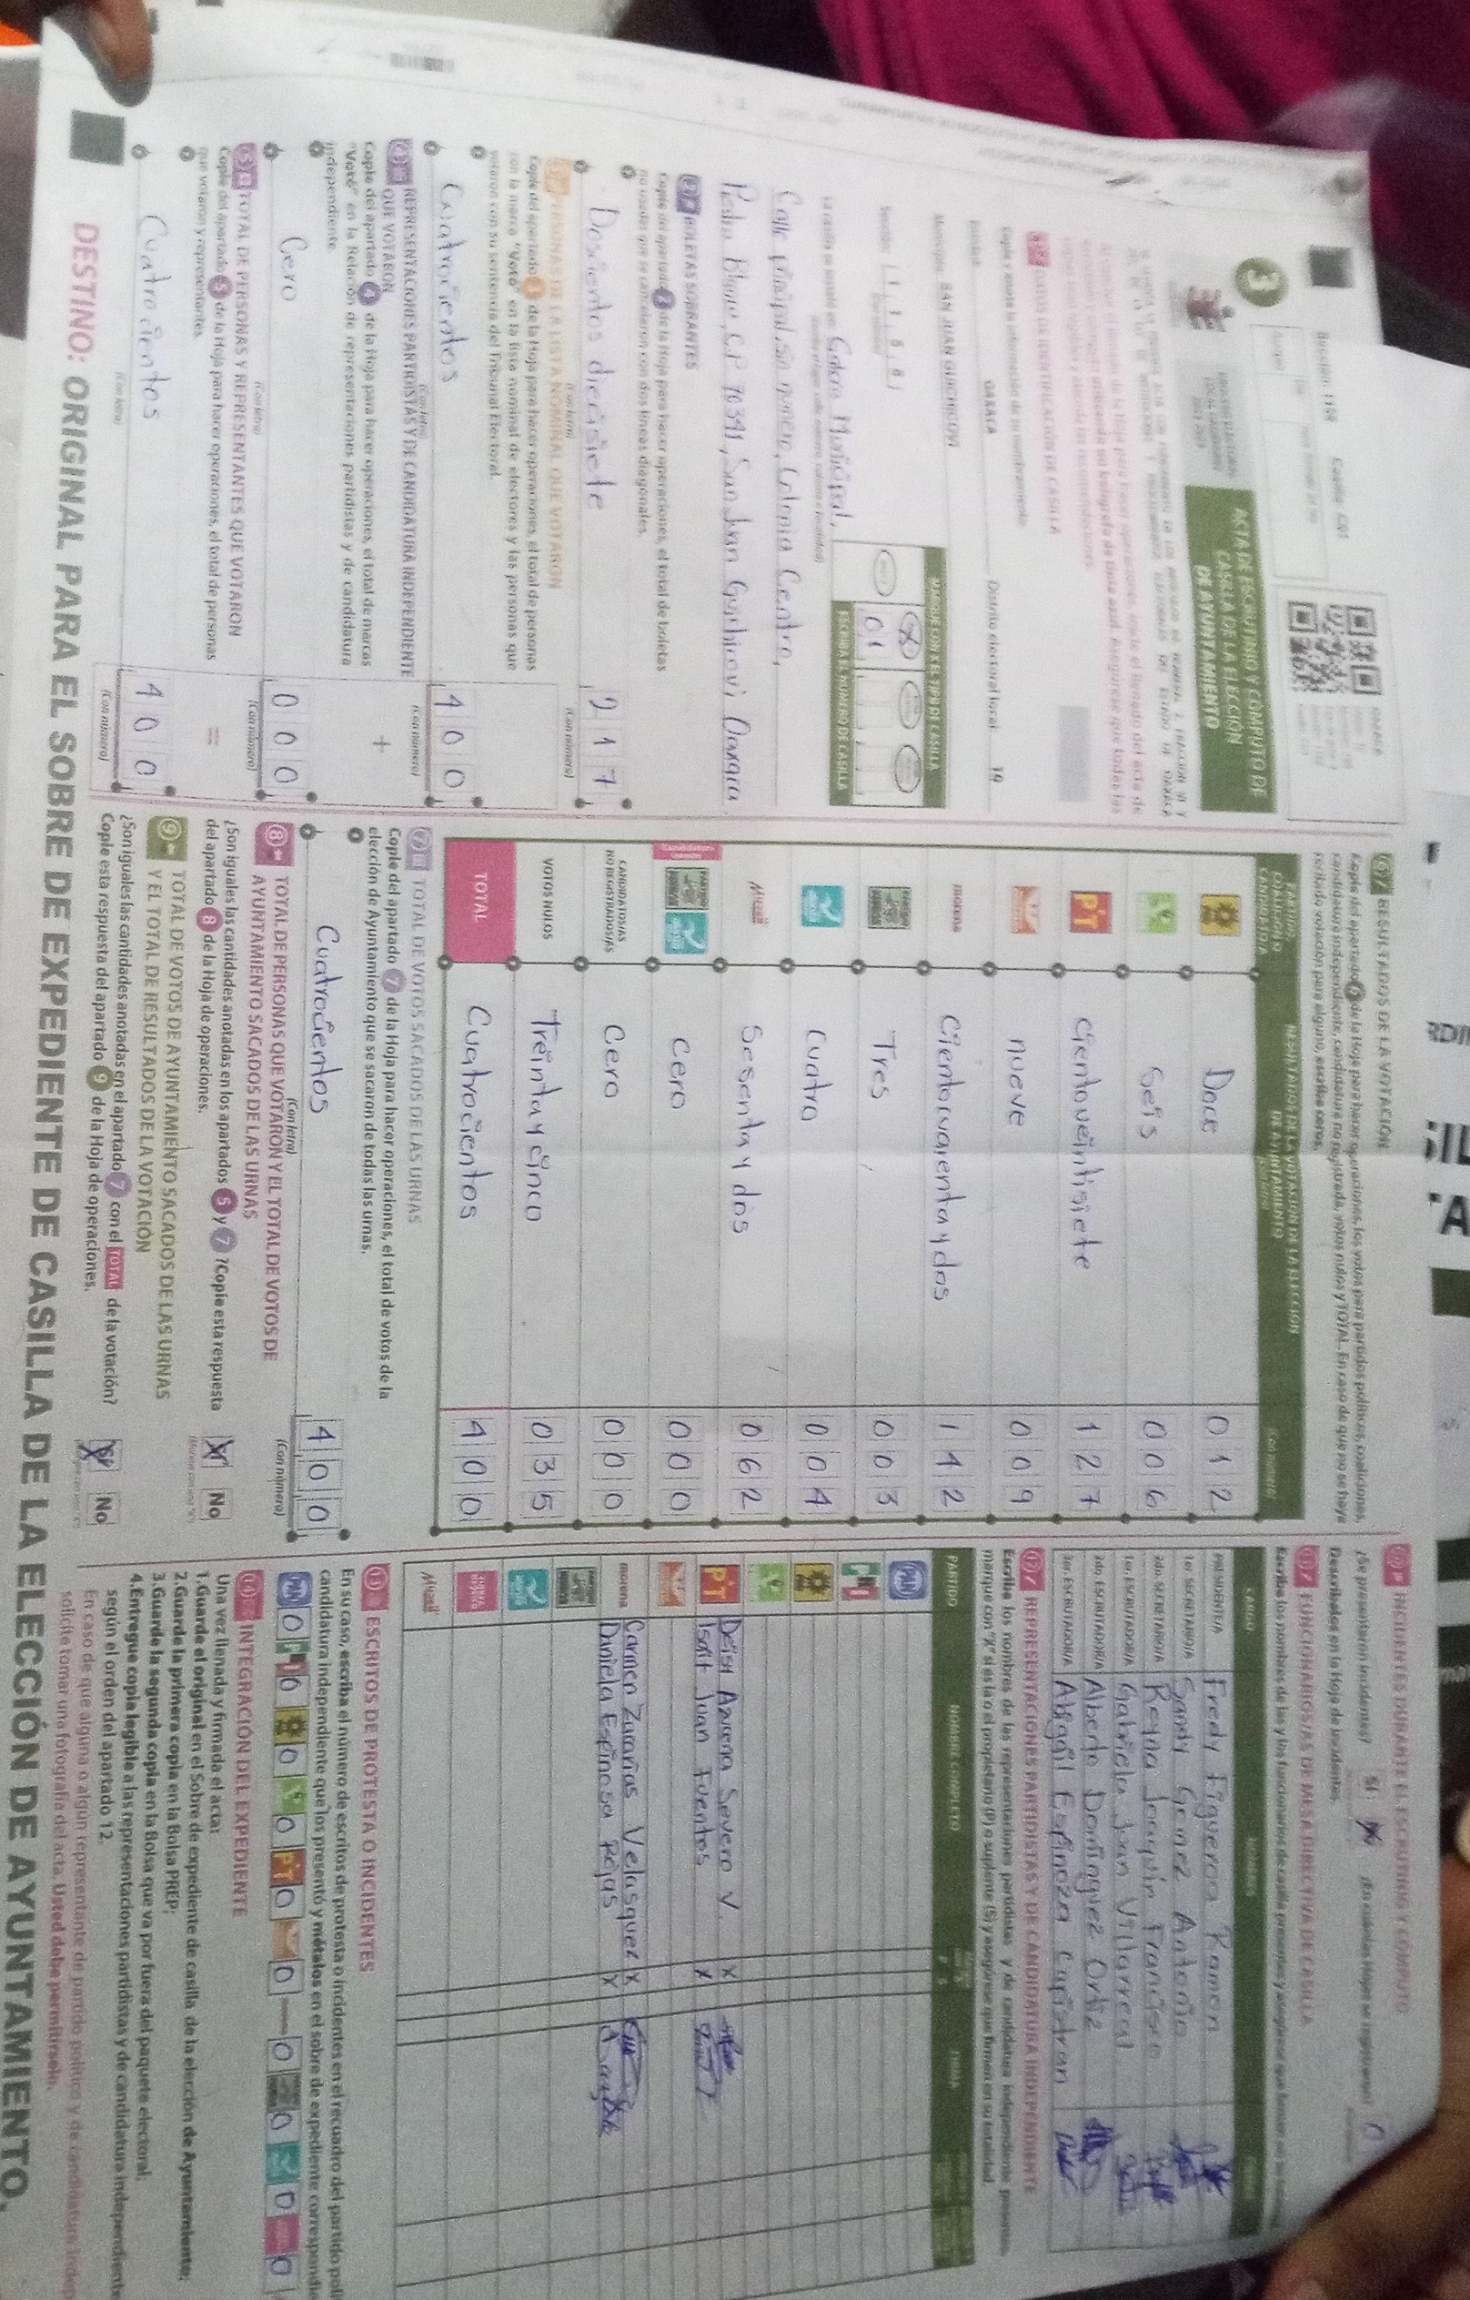 3
ACTA DE ESCRUTINIO Y CÓMPUTO DE
CASILLA DE LA ELECCIÓN
DE AYUNTAMIENTO
DATOS DE IDENTIFICACIÓN DE CASILLA
OAXACA
Distrito electoral local: 19
SAN JUAN GUICHICOVI
Sección:
MARQUE CON X EL TIPO DE CASILLA
ESCRIBA EL NÚMERO DE CASILLA
X
01
La casilla se instaló en: Galera Municipal,
Calle principal, sin número, Colonia Centro,
C.P 70391, San Juan Guichicovi Oaxaca
2 BOLETAS SOBRANTES
Copie del apartado 2 de la Hoja para hacer operaciones, el total de boletas
no usadas que se cancelaron con dos líneas diagonales.
Doscientos diecisiete
217
(Con letra)
(Con número)
3 PERSONAS DE LA LISTA NOMINAL QUE VOTARON
Copie del apartado 3 de la Hoja para hacer operaciones, el total de personas
con la marca "Votó" en la lista nominal de electores y las personas que
votaron con su sentencia del Tribunal Electoral.
Cuatrocientos
400
(Con letra)
(Con número)
4 REPRESENTACIONES PARTIDISTAS Y DE CANDIDATURA INDEPENDIENTE
QUE VOTARON
+
Copie del apartado 4 de la Hoja para hacer operaciones, el total de marcas
"Votó" en la Relación de representaciones partidistas y de candidatura
independiente.
Cero
000
(Con letra)
(Con número)
5 TOTAL DE PERSONAS Y REPRESENTANTES QUE VOTARON
=
Copie del apartado 5 de la Hoja para hacer operaciones, el total de personas
que votaron y representantes.
Cuatrocientos
400
(Con letra)
(Con número)
6 RESULTADOS DE LA VOTACIÓN
Copie del apartado 6 de la Hoja para hacer operaciones, los votos para partidos políticos, coaliciones,
candidatura independiente, candidatura no registrada, votos nulos y TOTAL. En caso de que no se haya
recibido votación para alguno, escriba ceros.
PARTIDO,
COALICIÓN O
CANDIDATO/A
RESULTADOS DE LA VOTACIÓN DE LA ELECCIÓN
DE AYUNTAMIENTO
(Con número)
Doce 012
Seis 006
PT Ciento veintisiete 127
nueve 009
morena Ciento cuarenta y dos 142
Tres 003
Cuatro 004
Sesenta y dos 062
Cero 000
CANDIDATOS/AS
NO REGISTRADOS/AS Cero 000
VOTOS NULOS Treinta y cinco 035
TOTAL Cuatrocientos 400
7 TOTAL DE VOTOS SACADOS DE LAS URNAS
Copie del apartado 7 de la Hoja para hacer operaciones, el total de votos de la
elección de Ayuntamiento que se sacaron de todas las urnas.
Cuatrocientos
400
(Con letra)
(Con número)
8 TOTAL DE PERSONAS QUE VOTARON Y EL TOTAL DE VOTOS DE
AYUNTAMIENTO SACADOS DE LAS URNAS
¿Son iguales las cantidades anotadas en los apartados 5 y 7? Copie esta respuesta
del apartado 8 de la Hoja de operaciones.
X No
9 TOTAL DE VOTOS DE AYUNTAMIENTO SACADOS DE LAS URNAS
Y EL TOTAL DE RESULTADOS DE LA VOTACIÓN
¿Son iguales las cantidades anotadas en el apartado 7 con el TOTAL de la votación?
Copie esta respuesta del apartado 9 de la Hoja de operaciones.
X No
INCIDENTES DURANTE EL ESCRUTINIO Y CÓMPUTO
¿Se presentaron incidentes? Sí
Descríbalos en la Hoja de Incidentes.
FUNCIONARIOS/AS DE MESA DIRECTIVA DE CASILLA
CARGO
PRESIDENTE/A Fredy Figueroa Ramon
1er. SECRETARIO/A Sandy Gomez Antonio
2do. SECRETARIO/A Reyna Joaquin Francisco
1er. ESCRUTADOR/A Gabriela Juan Villarreal
2do. ESCRUTADOR/A Alberto Dominguez Ortiz
3er. ESCRUTADOR/A Abigail Espinoza Capistran
12 REPRESENTACIONES PARTIDISTAS Y DE CANDIDATURA INDEPENDIENTE
PARTIDO NOMBRE COMPLETO P S FIRMA
PAN
PT Deisy Azucena Severo V. X
Isait Juan Fuentes X
morena Carmen Zacarias Velasquez X
Daniela Espinosa Rojas X
13 ESCRITOS DE PROTESTA O INCIDENTES
En su caso, escriba el número de escritos de protesta o incidentes en el recuadro del partido
candidatura independiente que los presentó y métalos en el sobre de expediente
PAN 0 0 0 0 PT 0 0 0 0 0 0
14 INTEGRACIÓN DEL EXPEDIENTE
Una vez llenada y firmada el acta:
1. Guarde el original en el Sobre de expediente de casilla de la elección de Ayuntamiento;
2. Guarde la primera copia en la Bolsa PREP;
3. Guarde la segunda copia en la Bolsa que va por fuera del paquete electoral;
4. Entregue copia legible a las representaciones partidistas y de candidatura independiente
según el orden del apartado 12.
En caso de que alguna o algún representante de partido político y de candidatura
solicite tomar una fotografía del acta, Usted debe permitírselo.
DESTINO: ORIGINAL PARA EL SOBRE DE EXPEDIENTE DE CASILLA DE LA ELECCIÓN DE AYUNTAMIENTO.